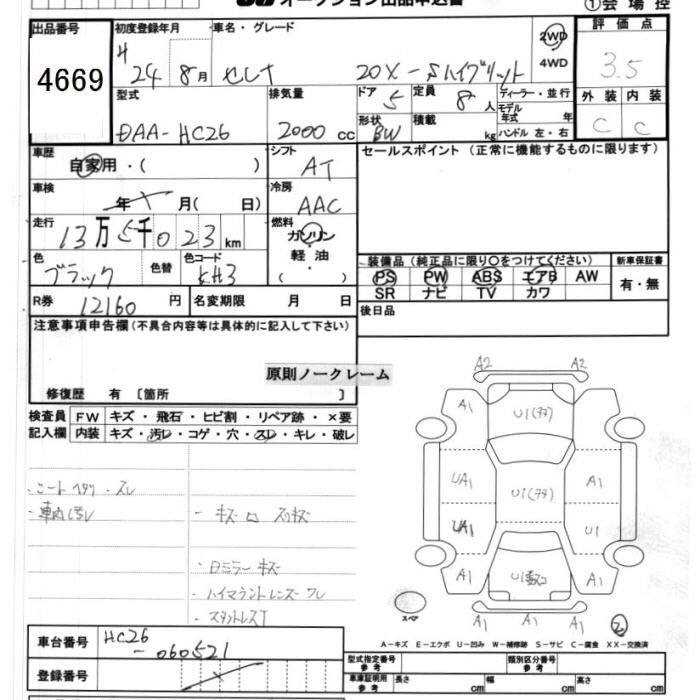 オークション出品申込書
① 会場控
出品番号
4669
初度登録年月
H
24年 8月
車名・グレード
セレナ 20X-Sハイブリット
2WD
4WD
評価点
3.5
外装 内装
C C
型式
DAA-HC26
排気量
2000 cc
ドア
5
定員
8 人
形状
BW
積載
kg
ディーラー・並行
モデル年式 年
ハンドル 左・右
車歴
自家用・( )
シフト
AT
セールスポイント (正常に機能するものに限ります)
車検
年 月( 日)
冷房
AAC
走行
13万5千023km
燃料
ガソリン
軽油
( )
色
ブラック
色替
色コード
KH3
装備品 (純正品に限り〇をつけてください)
PS PW ABS エアB AW
SR ナビ TV カワ
新車保証書
有・無
R券
12160 円
名変期限 月 日
後日品
注意事項申告欄 (不具合内容等は具体的に記入して下さい)
原則ノークレーム
修復歴 有 〔箇所 〕
検査員記入欄
FW キズ・飛石・ヒビ割・リペア跡・×要
内装 キズ・汚レ・コゲ・穴・スレ・キレ・破レ
・シートヘタリ・スレ
・車内汚レ
・キズ ロ スリキズ
・Dミラーキズ
・ハイマウントレンズワレ
A2 A2
A1 U1(アタ)
UA1 U1(アタ) A1
UA1 U1
A1 A1
A1 A1 A1
スペア
A-キズ E-エクボ U-凹み W-補修跡 S-サビ C-腐食 XX-交換済
車台番号
HC26
-060521
登録番号
型式指定番号
参考
類別区分番号
参考
車庫証明用
参考
長さ cm
幅 cm
高さ cm